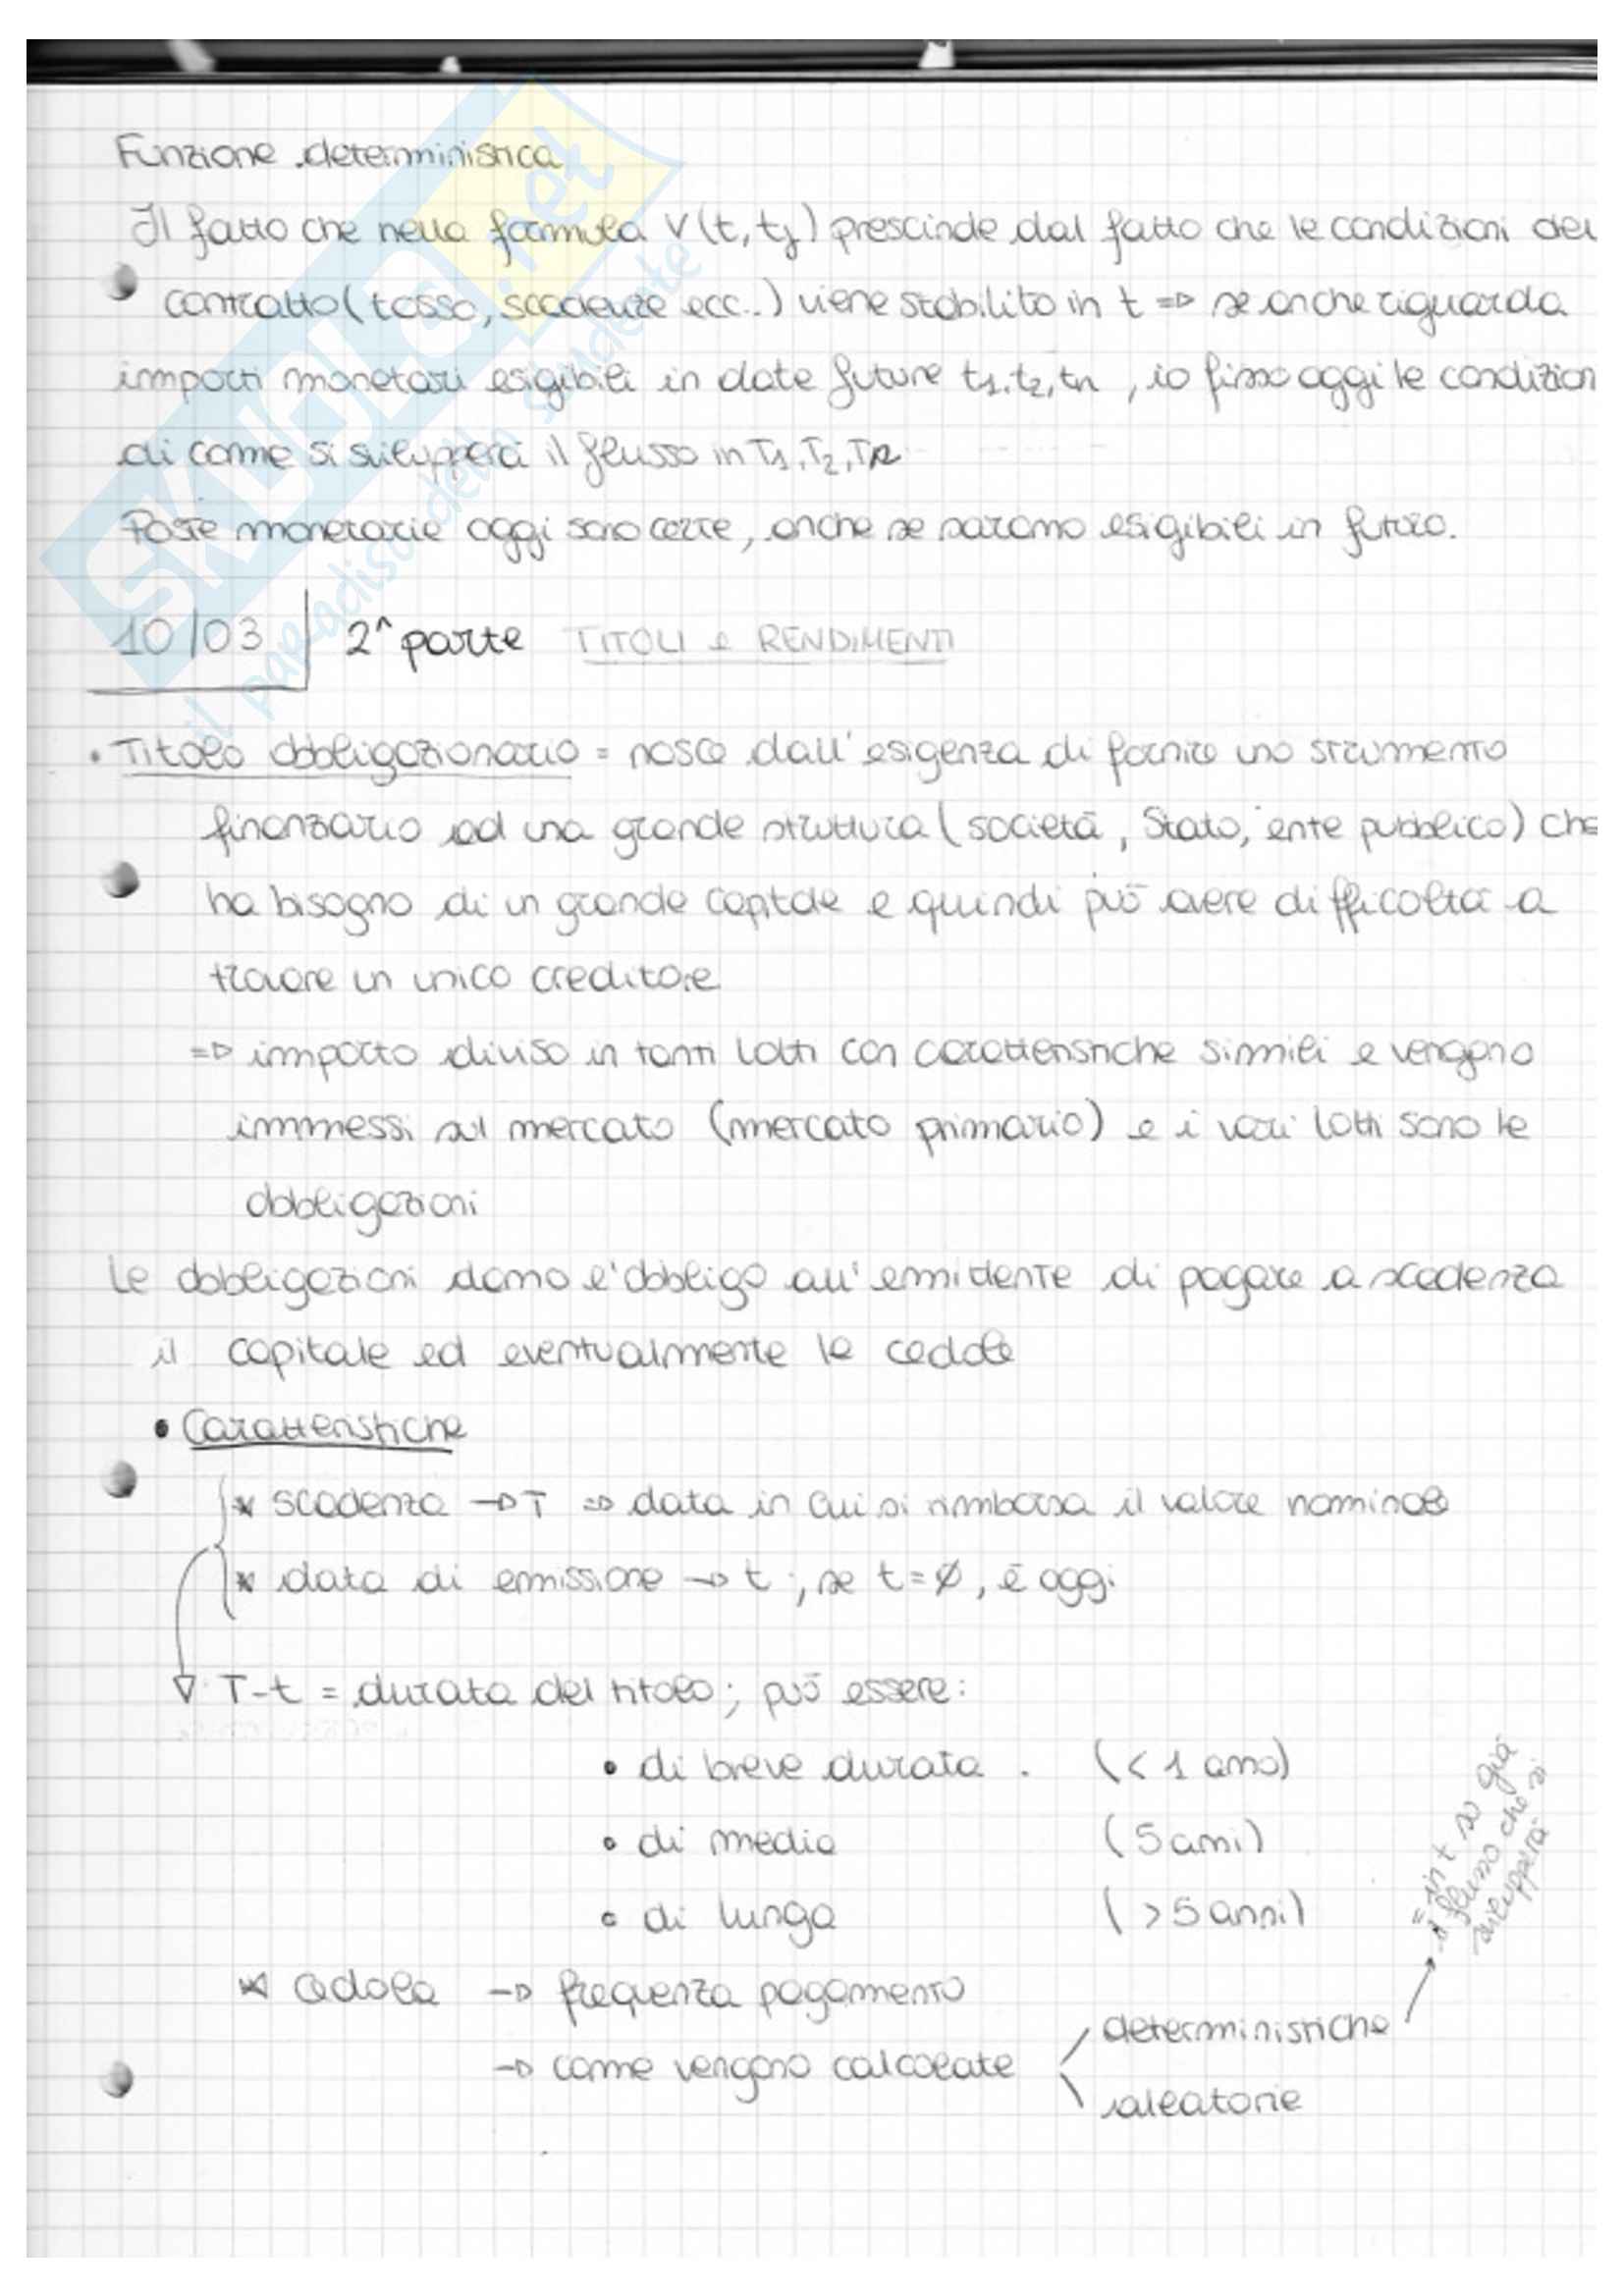 Funzione deterministica
Il fatto che nella formula V(t, tj) prescinde dal fatto che le condizioni del
contratto (tasso, scadenze ecc..) viene stabilito in t => se anche riguarda
importi monetari esigibili in date future t1, t2, tn, io fisso oggi le condizion
di come si svilupperà il flusso in T1, T2, Tn
Poste monetarie oggi sono certe, anche se saranno esigibili in futuro.
10/03 2^ parte TITOLI e RENDIMENTI
• Titolo obbligazionario = nasce dall'esigenza di fornire uno strumento
finanziario ad una grande struttura (società, Stato, ente pubblico) che
ha bisogno di un grande capitale e quindi può avere difficoltà a
trovare un unico creditore
=> importo diviso in tanti lotti con caratteristiche simili e vengono
immessi sul mercato (mercato primario) e i vari lotti sono le
obbligazioni
Le obbligazioni danno l'obbligo all'emittente di pagare a scadenza
il capitale ed eventualmente le cedole
• Caratteristiche
* scadenza -> T => data in cui si rimborsa il valore nominale
* data di emissione -> t ; se t=Ø, è oggi
T-t = durata del titolo; può essere:
• di breve durata . (< 1 anno)
• di media (5 anni)
• di lunga (>5 anni)
* cedola -> frequenza pagamento
-> come vengono calcolate
deterministiche
aleatorie
= in t so già
il flusso che si
svilupperà
SKUOLA.net
il paradiso dello studente